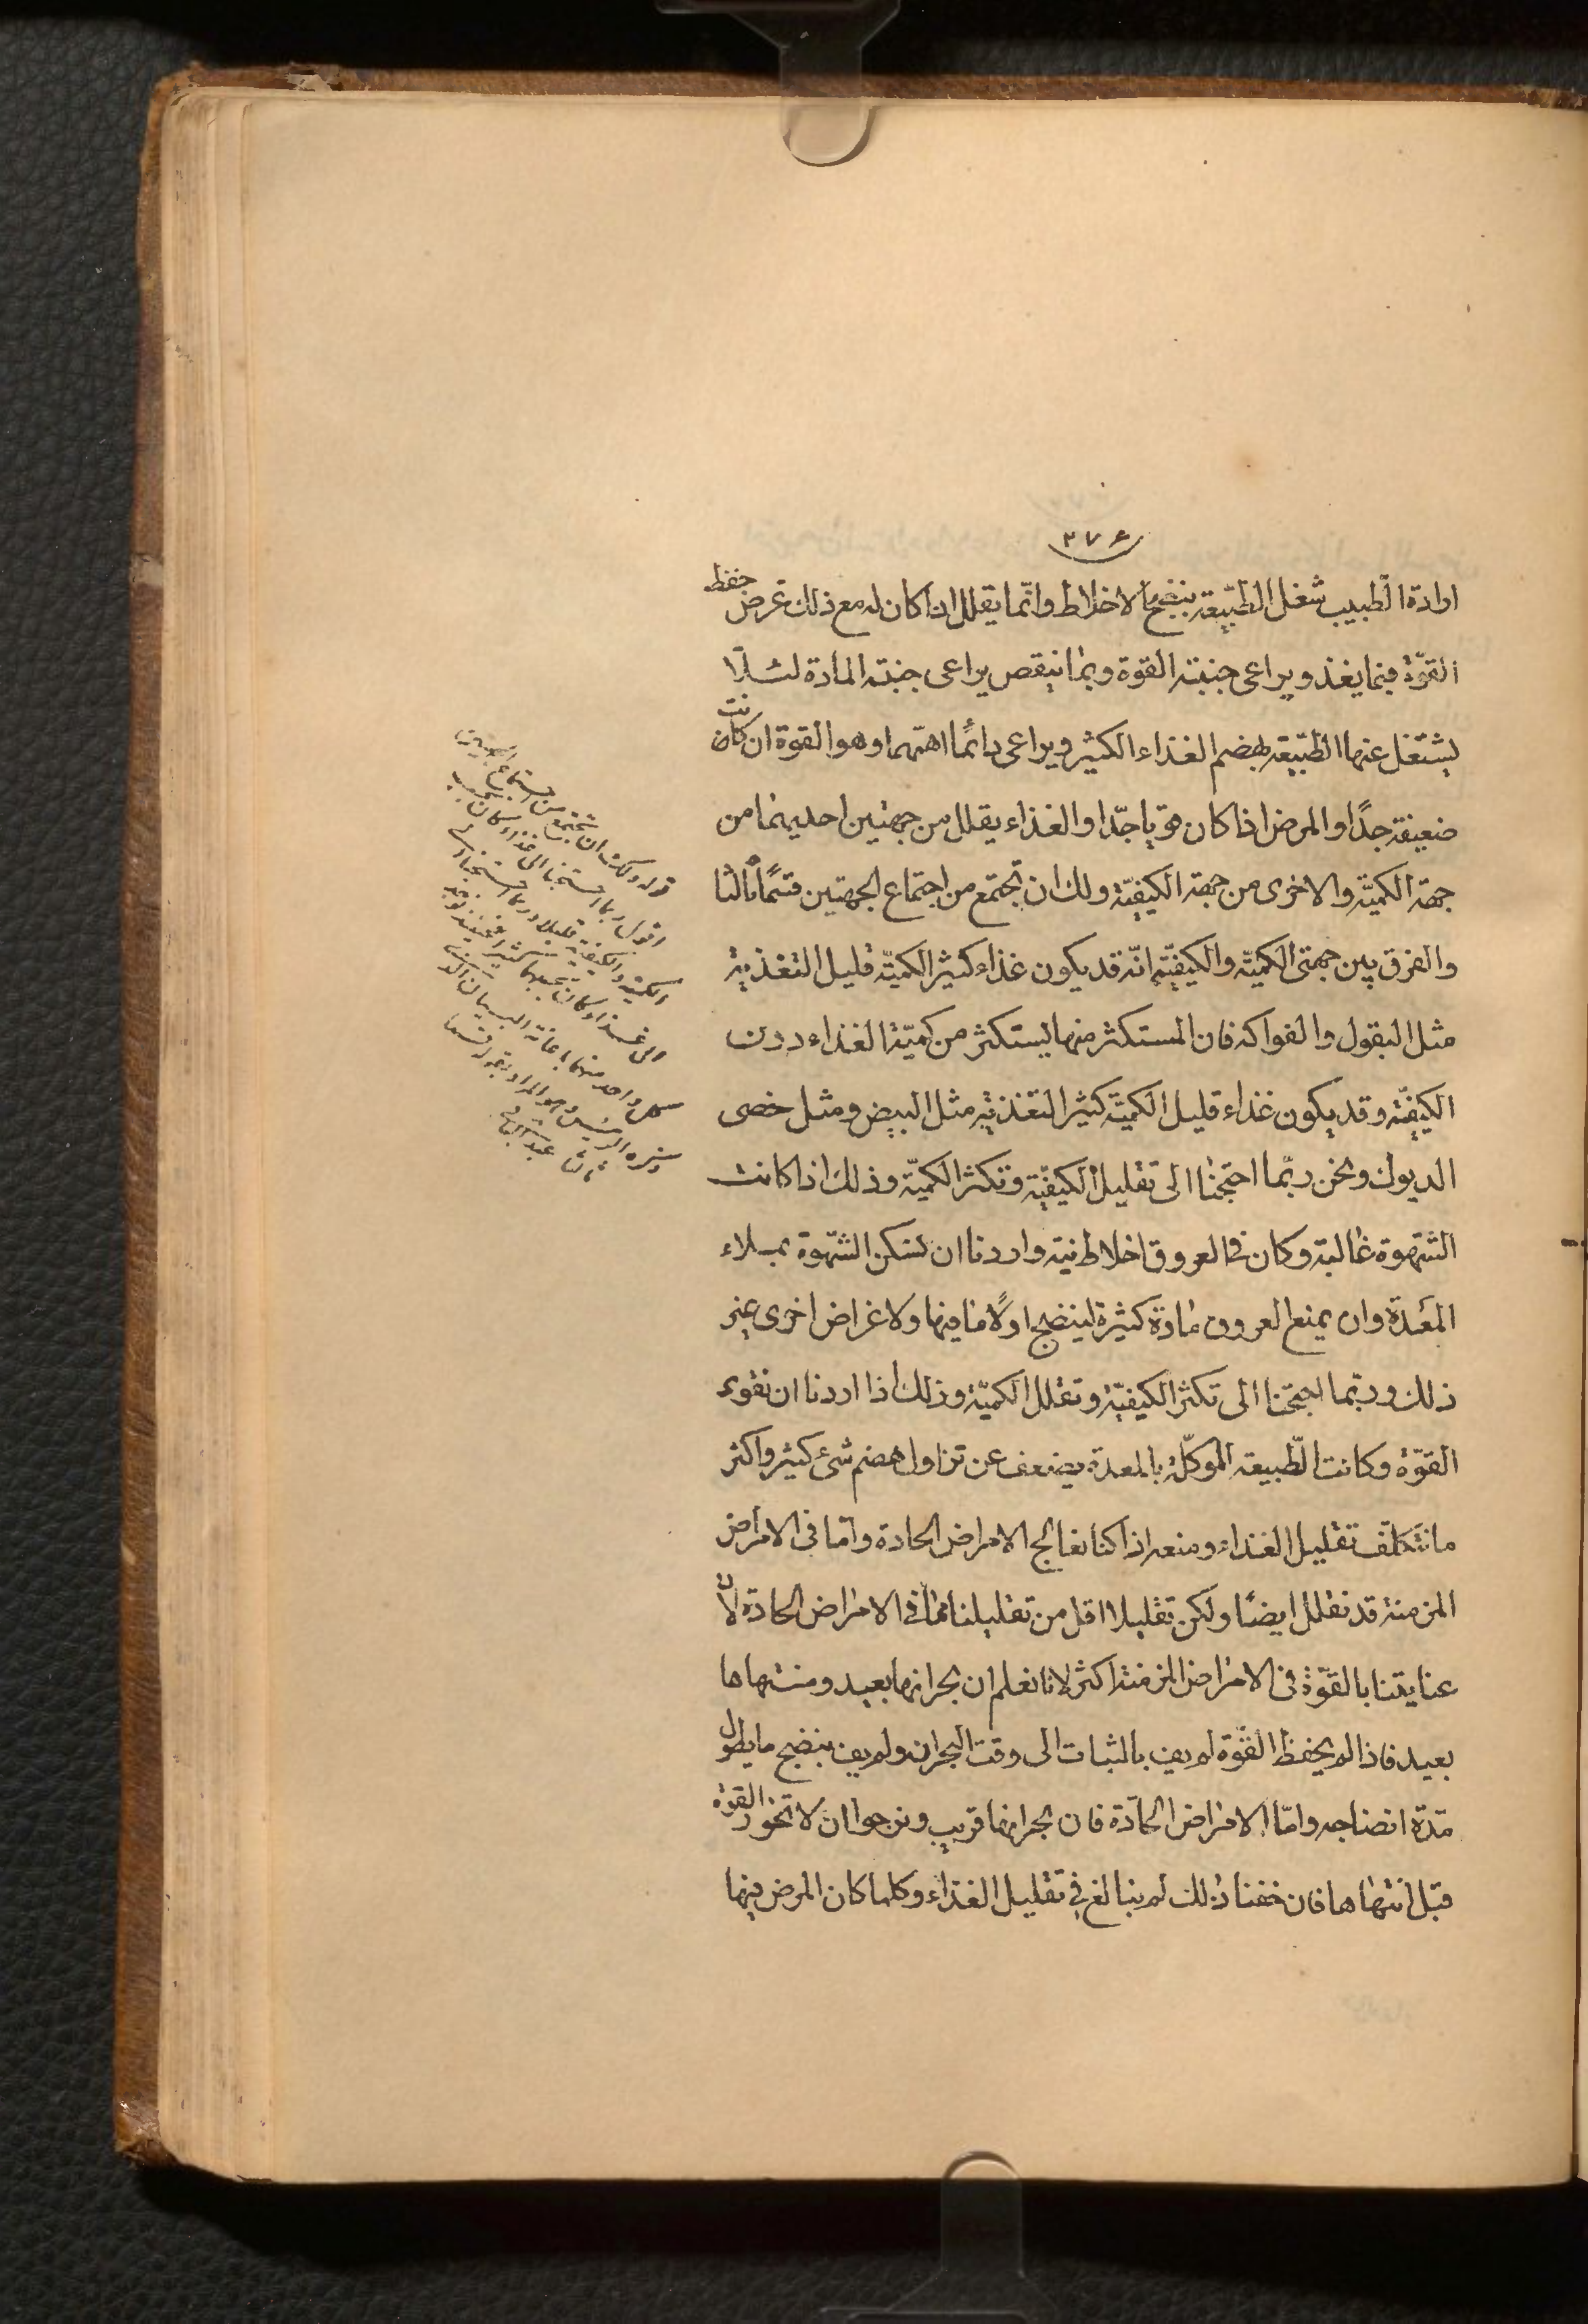 ۳۷۶
ارادة الطبيب شغل الطبيعة بنضج الاخلاط وانّما يقلل اذا كان له مع ذلك غرض حفظ
القوّة فبما يغذو يراعى جنبته القوة وبما ينقص يراعى جنبته المادة لئلّا
يشتغل عنها الطبيعة بهضم الغذاء الكثير ويراعى دائمًا اهتمّهما وهو القوة ان كانت
ضعيفة جدًا او المرض اذا كان قويا جدّا والغذاء يقلل من جهتين احديهما من
جهة الكميّة والاخرى من جهة الكيفيّة ولك ان تجتمع من اجتماع الجهتين قسمًا ثالثا
والفرق بين جهتى الكميّة والكيفيّة انّه قد يكون غذاء كثير الكميّة قليل التغذية
مثل البقول والفواكه فان المستكثر منها يستكثر من كميّة الغذاء دون
الكيفيّة وقد يكون غذاء قليل الكميّة كثير التغذية مثل البيض ومثل خصى
الديوك ونحن ربّما احتجنا الى تقليل الكيفيّة وتكثر الكميّة وذلك اذا كانت
الشهوة غالبة وكان فى العروق اخلاط نية واردنا ان نسكن الشهوة بملاء
المعدة وان يمنع العروق مادة كثيرة لينضج اولًا ما فيها ولاغراض اخرى غير
ذلك وربّما احتجنا الى تكثر الكيفيّة وتقلل الكميّة وذلك اذا اردنا ان نقوى
القوّة وكانت الطّبيعة الموكّلة بالمعدة يضعف عن تزاول هضم شىء كثير واكثر
ما نتكلّف تقليل الغذاء ومنعه اذا كنا نعالج الامراض الحادة وامّا فى الامراض
المزمنة قد نقلل ايضًا ولكن تقليلا اقل من تقليلنا مما فى الامراض الحادة لانّ
عنايتنا بالقوّة فى الامراض المزمنة اكثر لانا نعلم ان بحرانها بعيد ومنتهاها
بعيد فاذا لم يحفظ القوّة لم يف بالثبات الى وقت البحران ولم يف بنضج ما يطول
مدّة انضاجه وامّا الامراض الحادّة فان بحرانها قريب ونرجوا ان لا تخور القوة
قبل انتهاها فان خفنا ذلك لم نبالغ فى تقليل الغذاء وكلما كان المرض فيها
قوله ولك ان تجتمع من اجتماع الجهتين
اقول ربما احتجنا الى غذاء كان
الكمية والكيفية قليلا وربما احتجنا
الى غذاء كان
كل واحد منهما